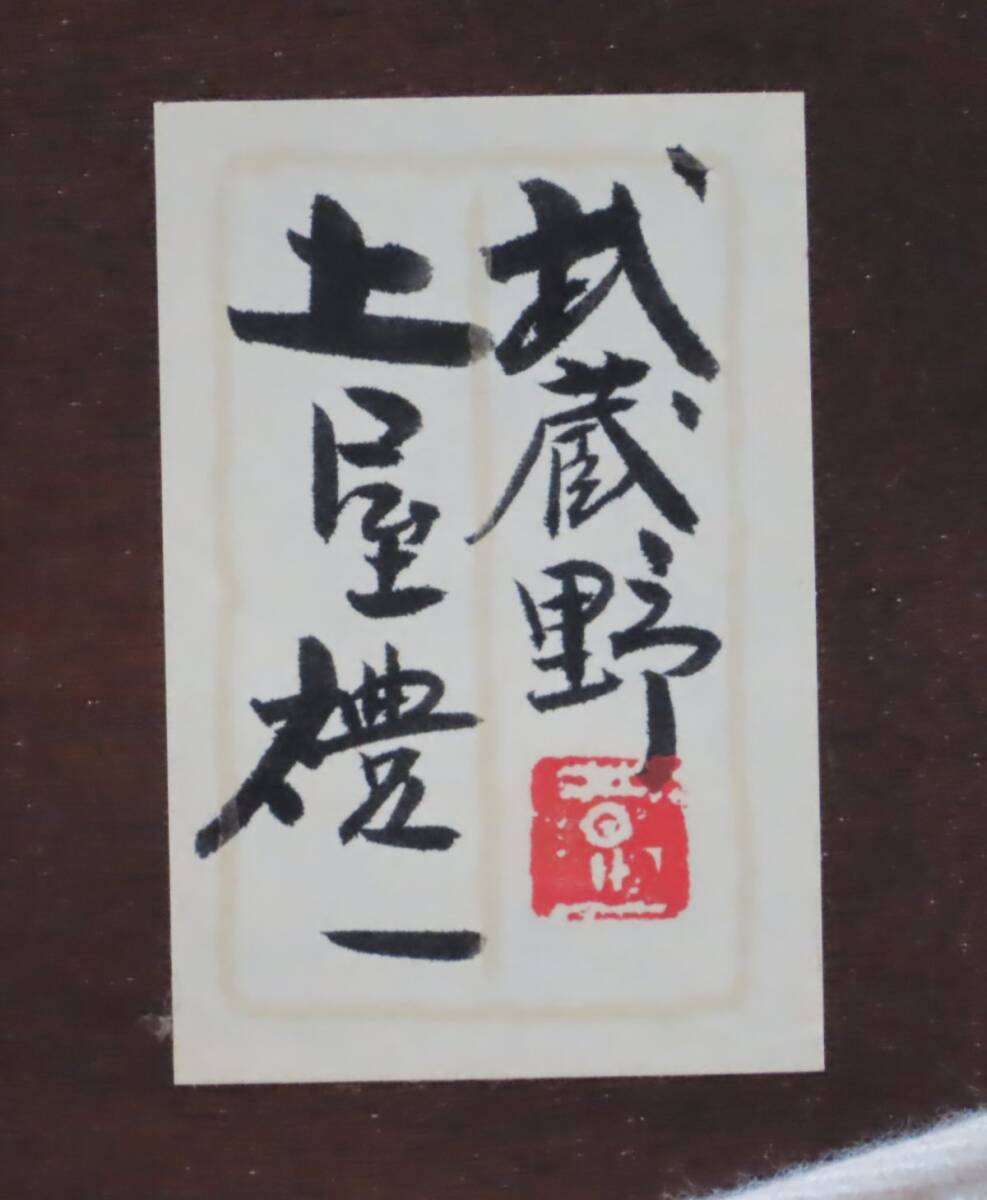 武蔵野
土屋禮一